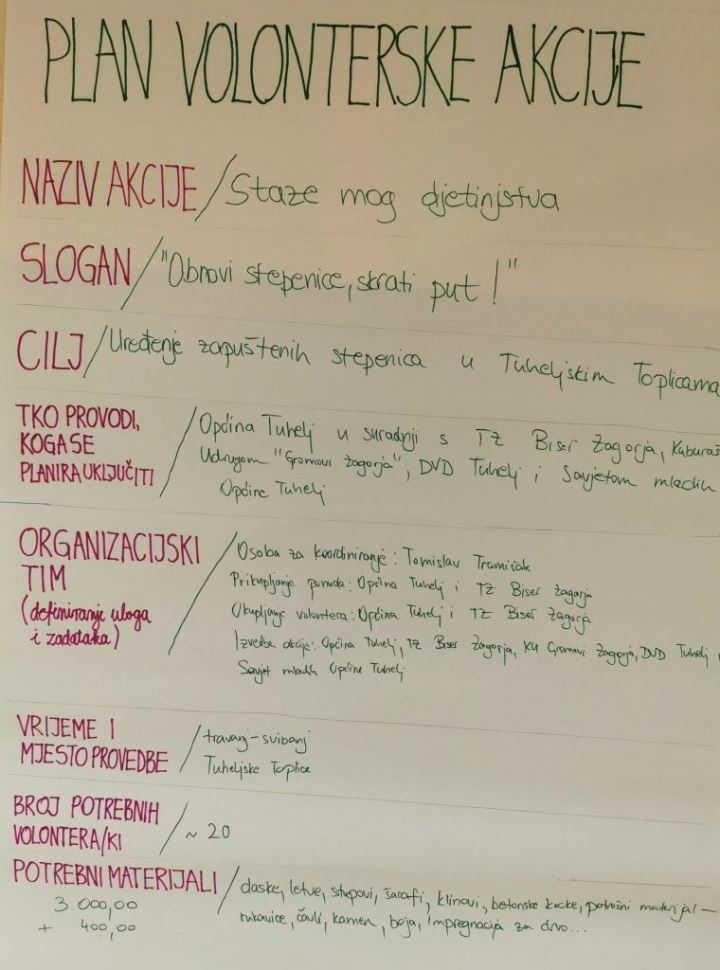 PLAN VOLONTERSKE AKCIJE
NAZIV AKCIJE / Staze mog djetinjstva
SLOGAN / "Obnovi stepenice, skrati put!"
CILJ / Uređenje zapuštenih stepenica u Tuheljskim Toplicama
TKO PROVODI,
KOGA SE
PLANIRA UKLJUČITI /
Općina Tuhelj u suradnji s TZ Biser Zagorja, Kuburaš
Udrugom "Gromovi Zagorja", DVD Tuhelj i Savjetom mladih
Općine Tuhelj
ORGANIZACIJSKI
TIM
(definiranje uloga
i zadataka) /
Osoba za koordiniranje: Tomislav
Prikupljanje ponuda: Općina Tuhelj i TZ Biser Zagorja
Okupljanje volontera: Općina Tuhelj i TZ Biser Zagorja
Izvedba akcije: Općina Tuhelj, TZ Biser Zagorja, KU Gromovi Zagorja, DVD Tuhelj
Savjet mladih Općine Tuhelj
VRIJEME I
MJESTO PROVEDBE /
travanj-svibanj
Tuheljske Toplice
BROJ POTREBNIH
VOLONTERA/KI / ~ 20
POTREBNI MATERIJALI /
3.000,00
+ 400,00
daske, letve, stupovi, šarafi, klinovi, betonske kocke, potrošni materijal -
rukavice, čavli, kamen, boja, impregnacija za drvo...